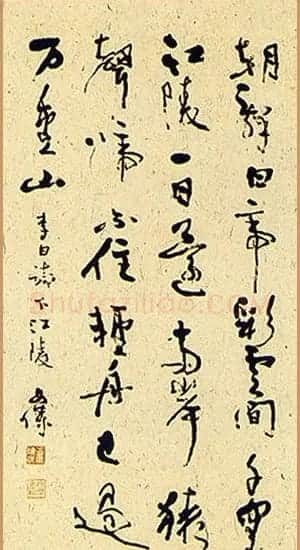 朝辭白帝彩雲間千里
江陵一日還兩岸猿
聲啼不住輕舟已過
万重山
李白詩下江陵